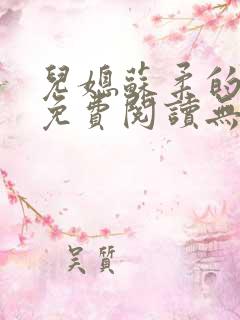 兒媳蘇柔的
免費閱讀無
吴質